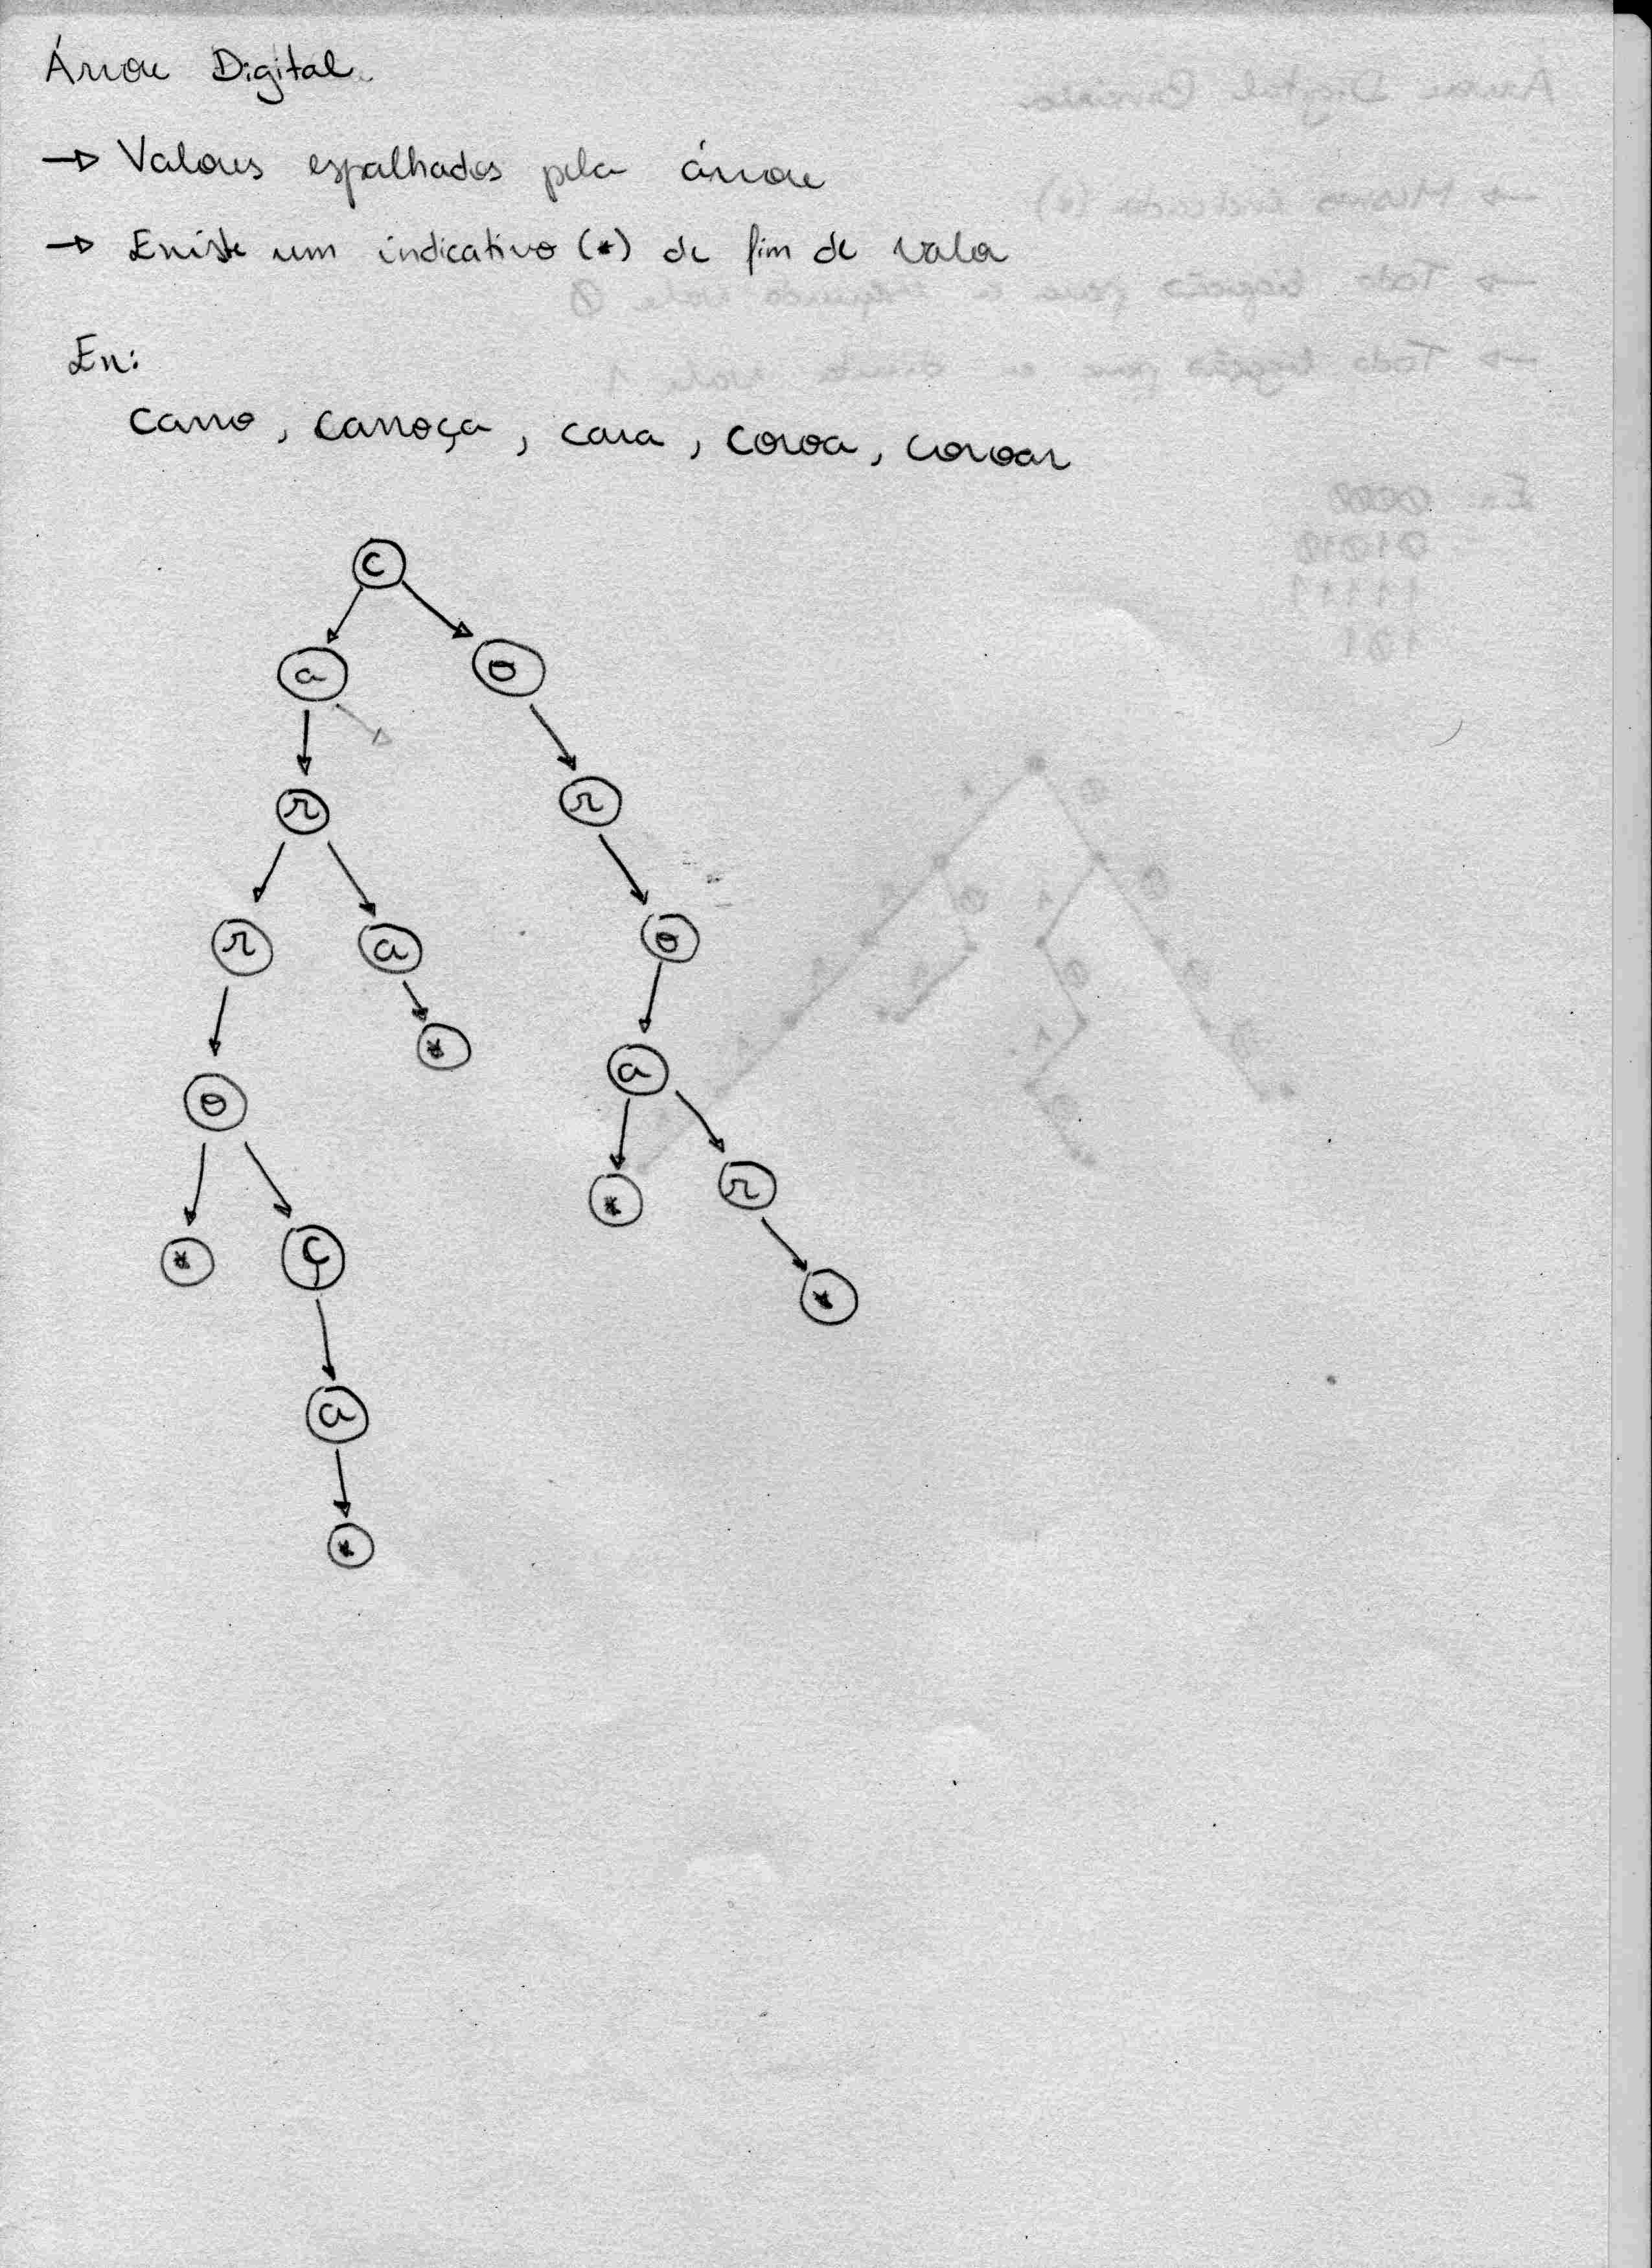 Árvore Digital.
→ Valores espalhados pela árvore
→ Existe um indicativo (*) de fim de valor
Ex:
carro, carroça, cara, coroa, coroar
c
a o
r r
r a o
* a
o
* r
* ç *
a
*